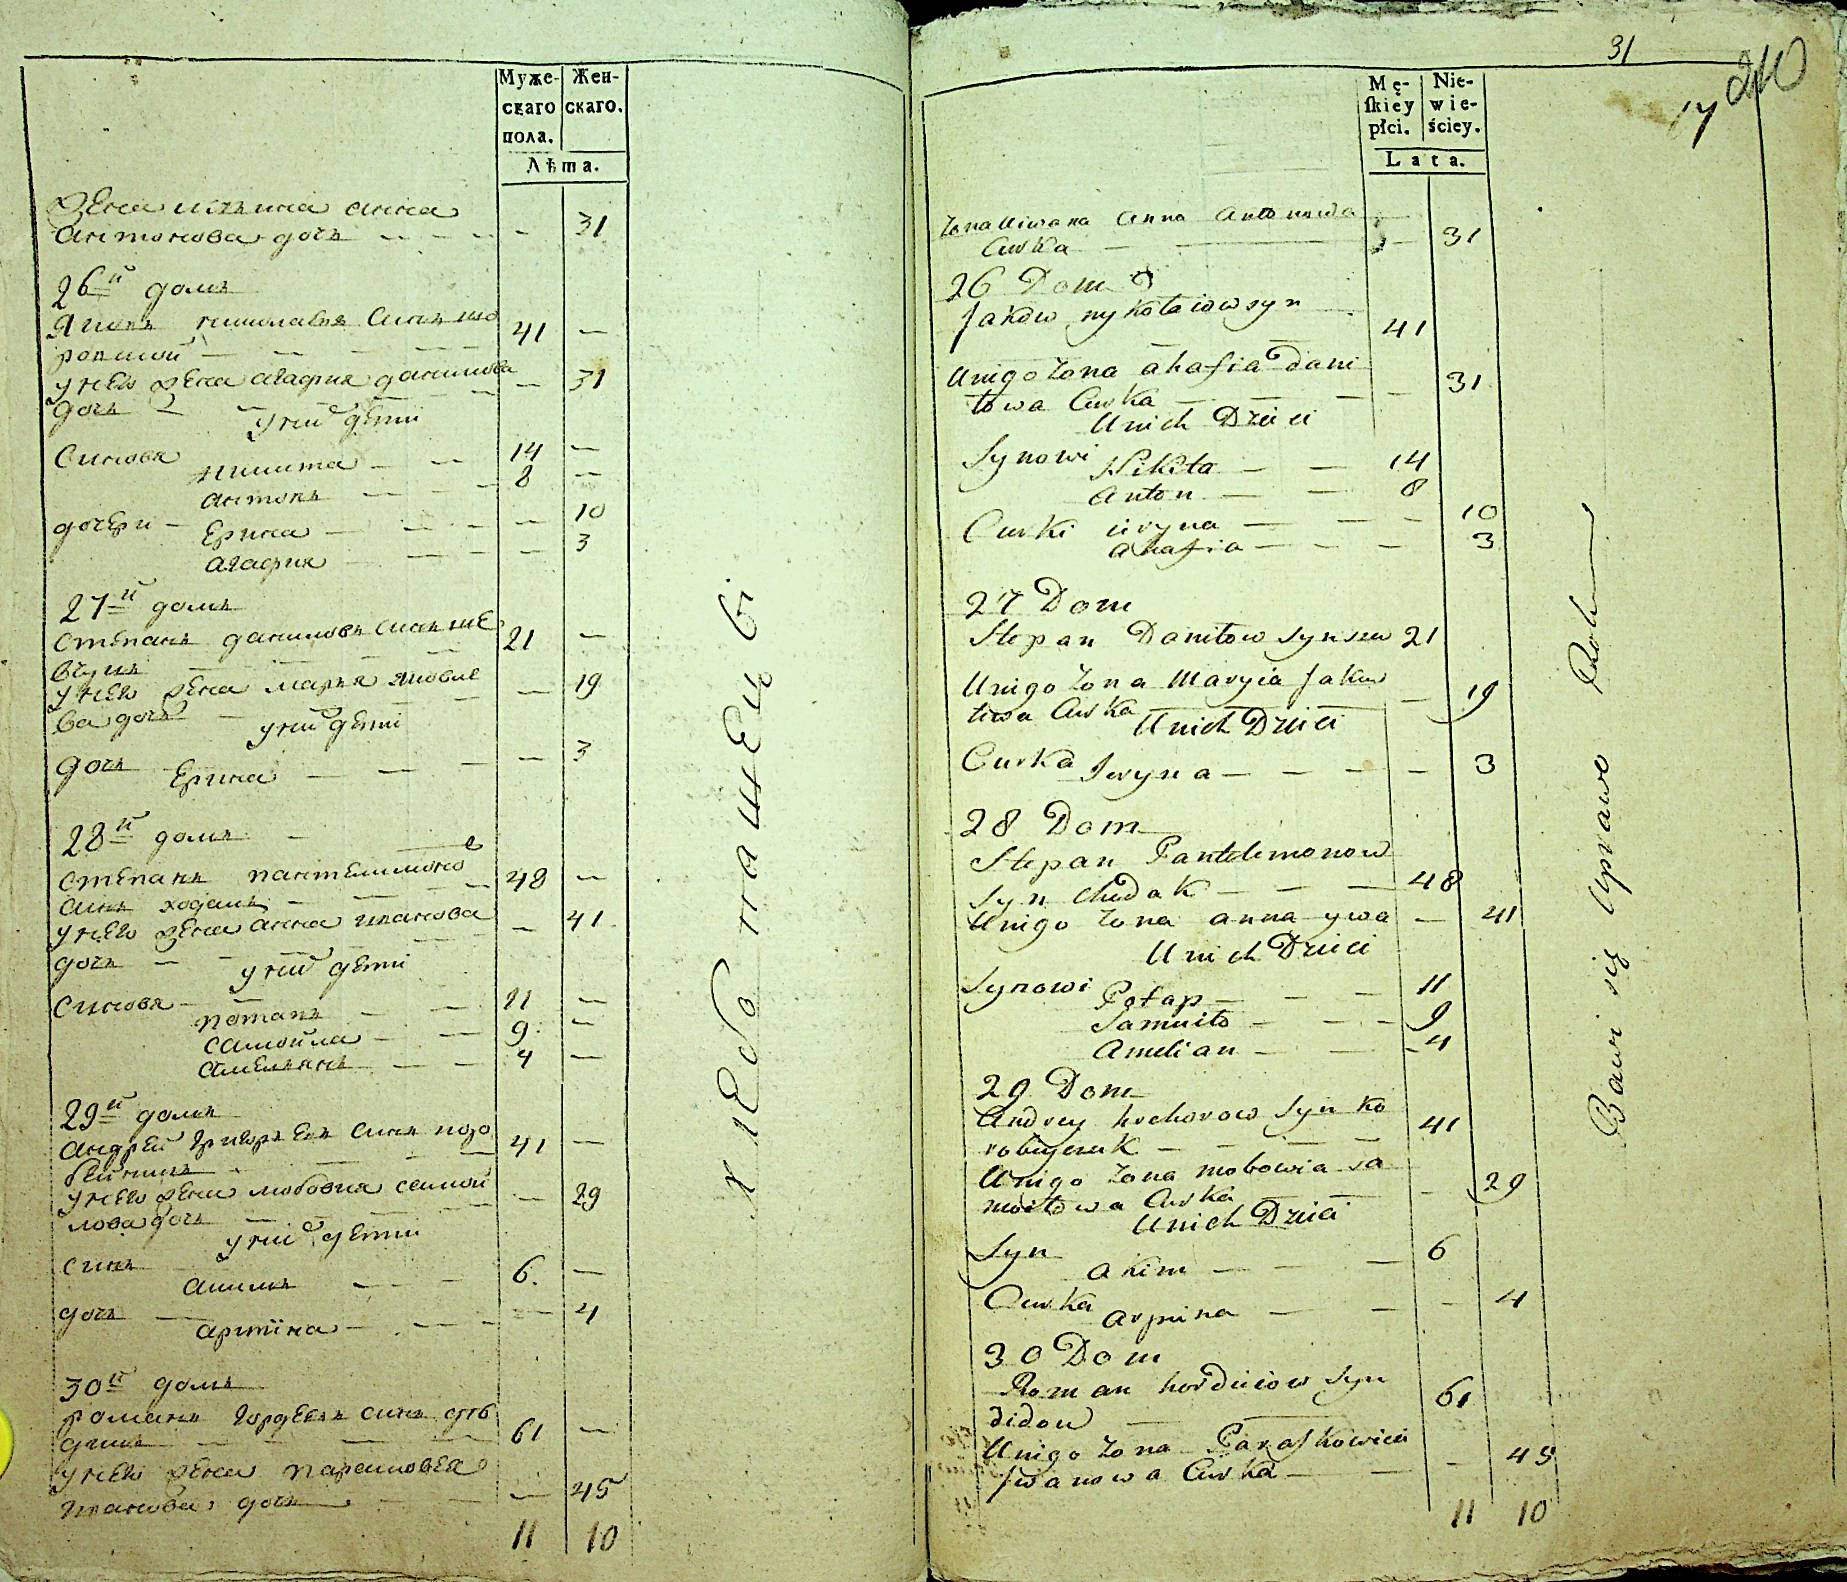 Муже-
скаго
пола.
Жен-
скаго.
Лѣта.
жена Анна
антонова дочь 31
26й домъ
Яковъ николаевъ синъ 41
у него жена агафия данилова 31
дочь
у них дети
Синовя
никита 14
антонъ 8
дочери
Ерина 10
агафия 3
27й домъ
степанъ даниловъ синъ ше 21
вчукъ
у него жена мария яковле 19
ва дочь
у них дети
дочь
Ерина 3
28й домъ
степанъ пантелимоно 48
синъ
у него жена анна иванова 41
дочь
у них дети
синовя
потапъ 11
самойла 9
амельянъ 4
29й домъ
андрей григорьевъ синъ коро 41
бейникъ
у него жена любовия самой 29
лова дочь
у них дети
синъ
акимъ 6
дочь
4
30й домъ
романъ гордеевъ синъ 61
у него жена парасковея
иванова дочь 45
11 10
хлебопашец
31
17
Mę-
skiey
płci.
Nie-
wie-
ściey.
Lata.
Żona Anna Antonowa
Curka 31
26 Dom
Jakow mykołaiow syn 41
Unigo żona ahafia Dani
łowa Curka 31
Unich Dzieci
Synowi Nikita 14
Anton 8
Curki iryna 10
ahafia 3
27 Dom
Stepan Daniłow Syn szew 21
Unigo żona Maryia Jakow
liwa Curka 19
Unich Dzieci
Curka Iryna 3
28 Dom
Stepan Pantelimonow
Syn Chudak 48
Unigo żona anna ywa 41
Unich Dzieci
Synowi Potap 11
Samuiło 9
Amelian 4
29 Dom
Andrey hrehorow Syn Ko 41
robeyczuk
Unigo żona sa
moiłowa Curka 29
Unich Dzieci
Syn
akim 6
Curka 4
30 Dom
Roman hordiiow Syn 61
didou
Unigo żona Paraskowiia
Iwanowa Curka 45
11 10
Bawi się Uprawo Roli